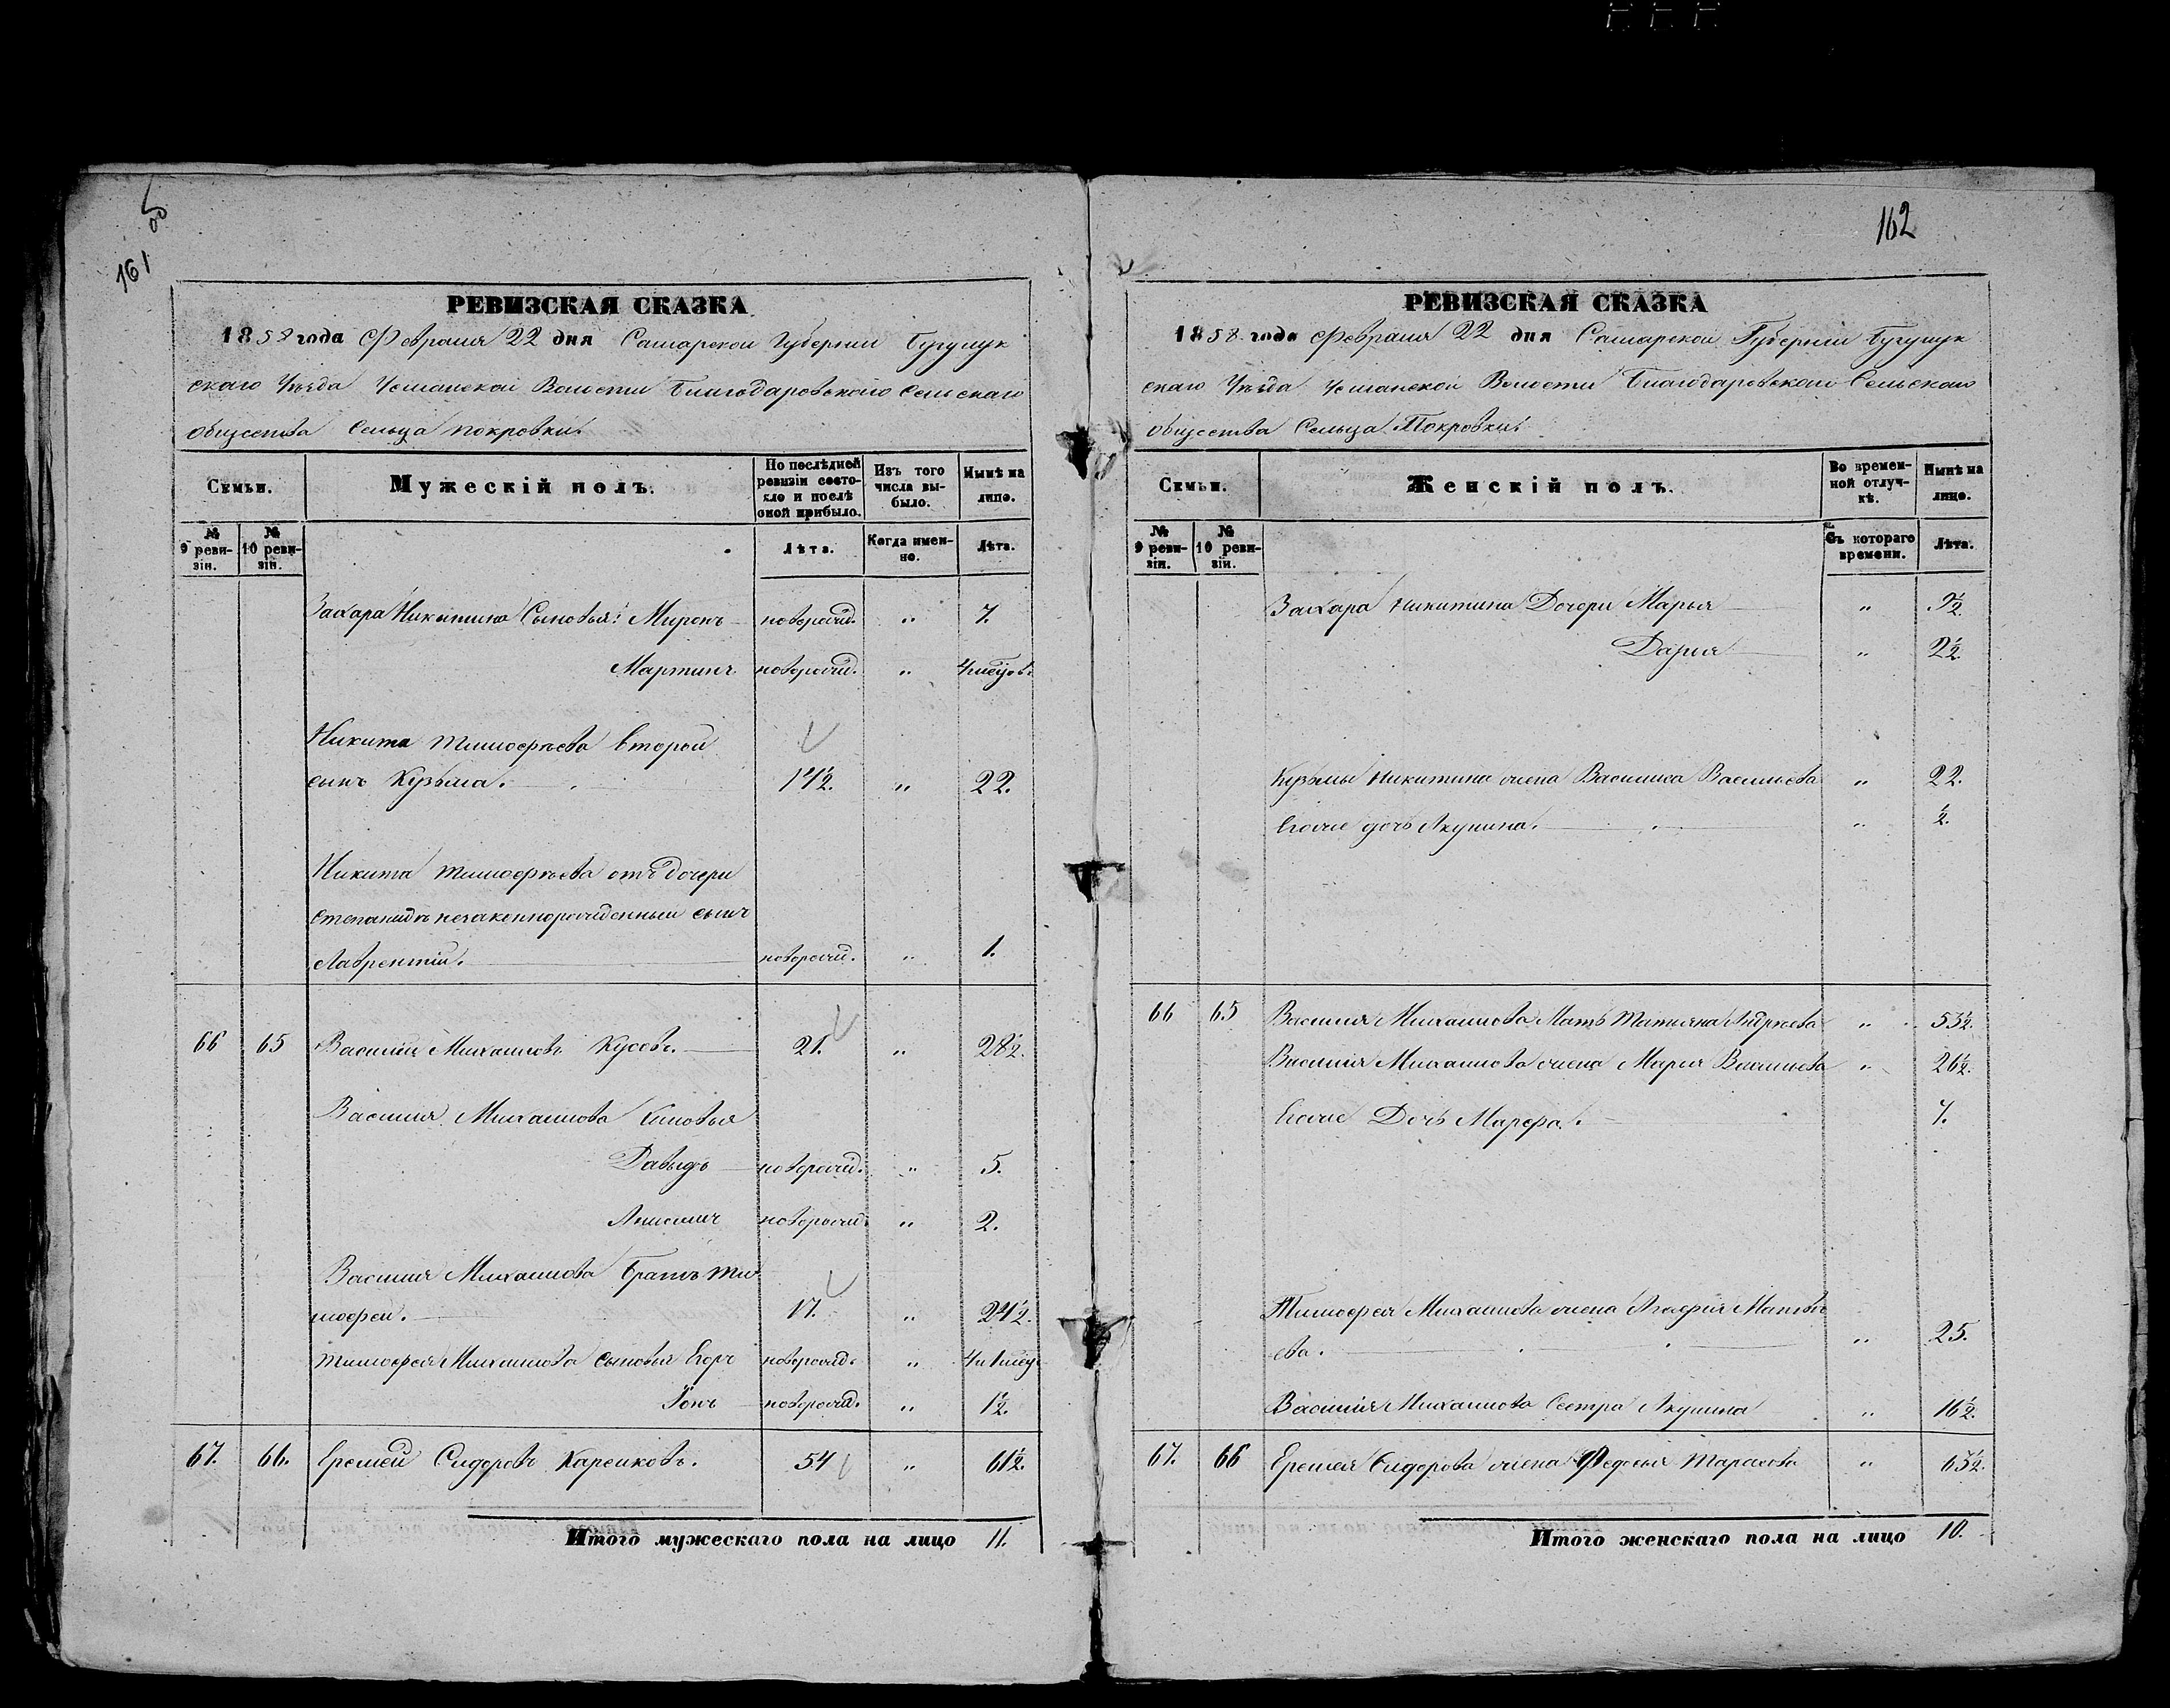 161
РЕВИЗСКАЯ СКАЗКА
1858 года Февраля 22 дня Самарской Губернии Бугурук
скаго Уѣзда Усманской Волости Благодаровскаго Сельскаго
общества Сельца Покровки.
Семьи.
Мужескій полъ.
По послѣдней ревизіи состояло и послѣ оной прибыло.
Изъ того числа выбыло.
Нынѣ на лицо.
№ 9 ревизіи.
№ 10 ревизіи.
Лѣта.
Когда именно.
Лѣта.
Захара Никитина Сыновья: Миронъ новорожд. „ 7.
Мартинъ новорожд. „
Никита Тимофѣева второй
сынъ Кузьма. „ 22.
Никита Тимофѣева отъ дочери
Степаниды незаконнорожденный сынъ
Лаврентій. новорожд. „ 1.
66 65 Василій Михаиловъ Кусовъ. 21. „ 28½.
Василия Михаилова Сыновья
Давыдъ новорожд. „ 5.
Анисимъ новорожд. „ 2.
Василия Михаилова братъ Ти
мофей. 17. „ 24½.
Тимофея Михаилова сыновья Егоръ новорожд. „
Іонъ новорожд. „ 1½.
67. 66. Еремей Сидоровъ Карпиковъ. 54 „ 61½.
Итого мужескаго пола на лицо 11.
162
РЕВИЗСКАЯ СКАЗКА
1858 года Февраля 22 дня Самарской Губерніи Бугурук
скаго Уѣзда Усманской Волости Благодаровскаго Сельскаго
общества Сельца Покровки.
Семьи.
Женскій полъ.
Во временной отлучкѣ.
Нынѣ на лицо.
№ 9 ревизіи.
№ 10 ревизіи.
Съ котораго времени.
Лѣта.
Захара Никитина Дочери Марья „ 9½
Дарья „ 2½.
Кузьмы Никитина жена Василиса Васильева „ 22.
Ихъ дочь Акулина. „ ½.
66 65 Василия Михаилова Мать Татьяна Андреева „ 53½.
Василия Михаилова жена Марья Васильева „ 26½.
Ихъ Дочь Марфа. 7.
Тимофея Михаилова жена Агафія Матвѣ
ева. „ 25.
Василія Михаилова Сестра Акулина „ 16½.
67. 66 Еремея Сидорова жена Федосья Тарасова „ 65½.
Итого женскаго пола на лицо 10.